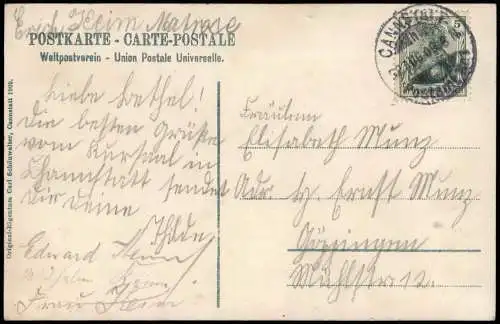 Erich Heim Matrose
POSTKARTE - CARTE-POSTALE
Weltpostverein - Union Postale Universelle.
CANNSTATT
Original-Eigentum Carl Schönwalter, Cannstatt 1909.
Liebe Bethel!
Die besten Grüße
vom Kursaal in
Channstatt sendet
Dir Deine
Hilde
Edward
Frau Heim
Fräulein
Elisabeth Munz
Adr. H. Ernst Munz
Göppingen
Mühlstr 12.